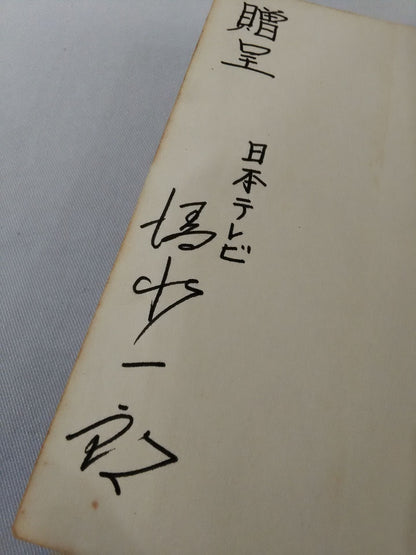 贈呈
日本テレビ
清水一郎